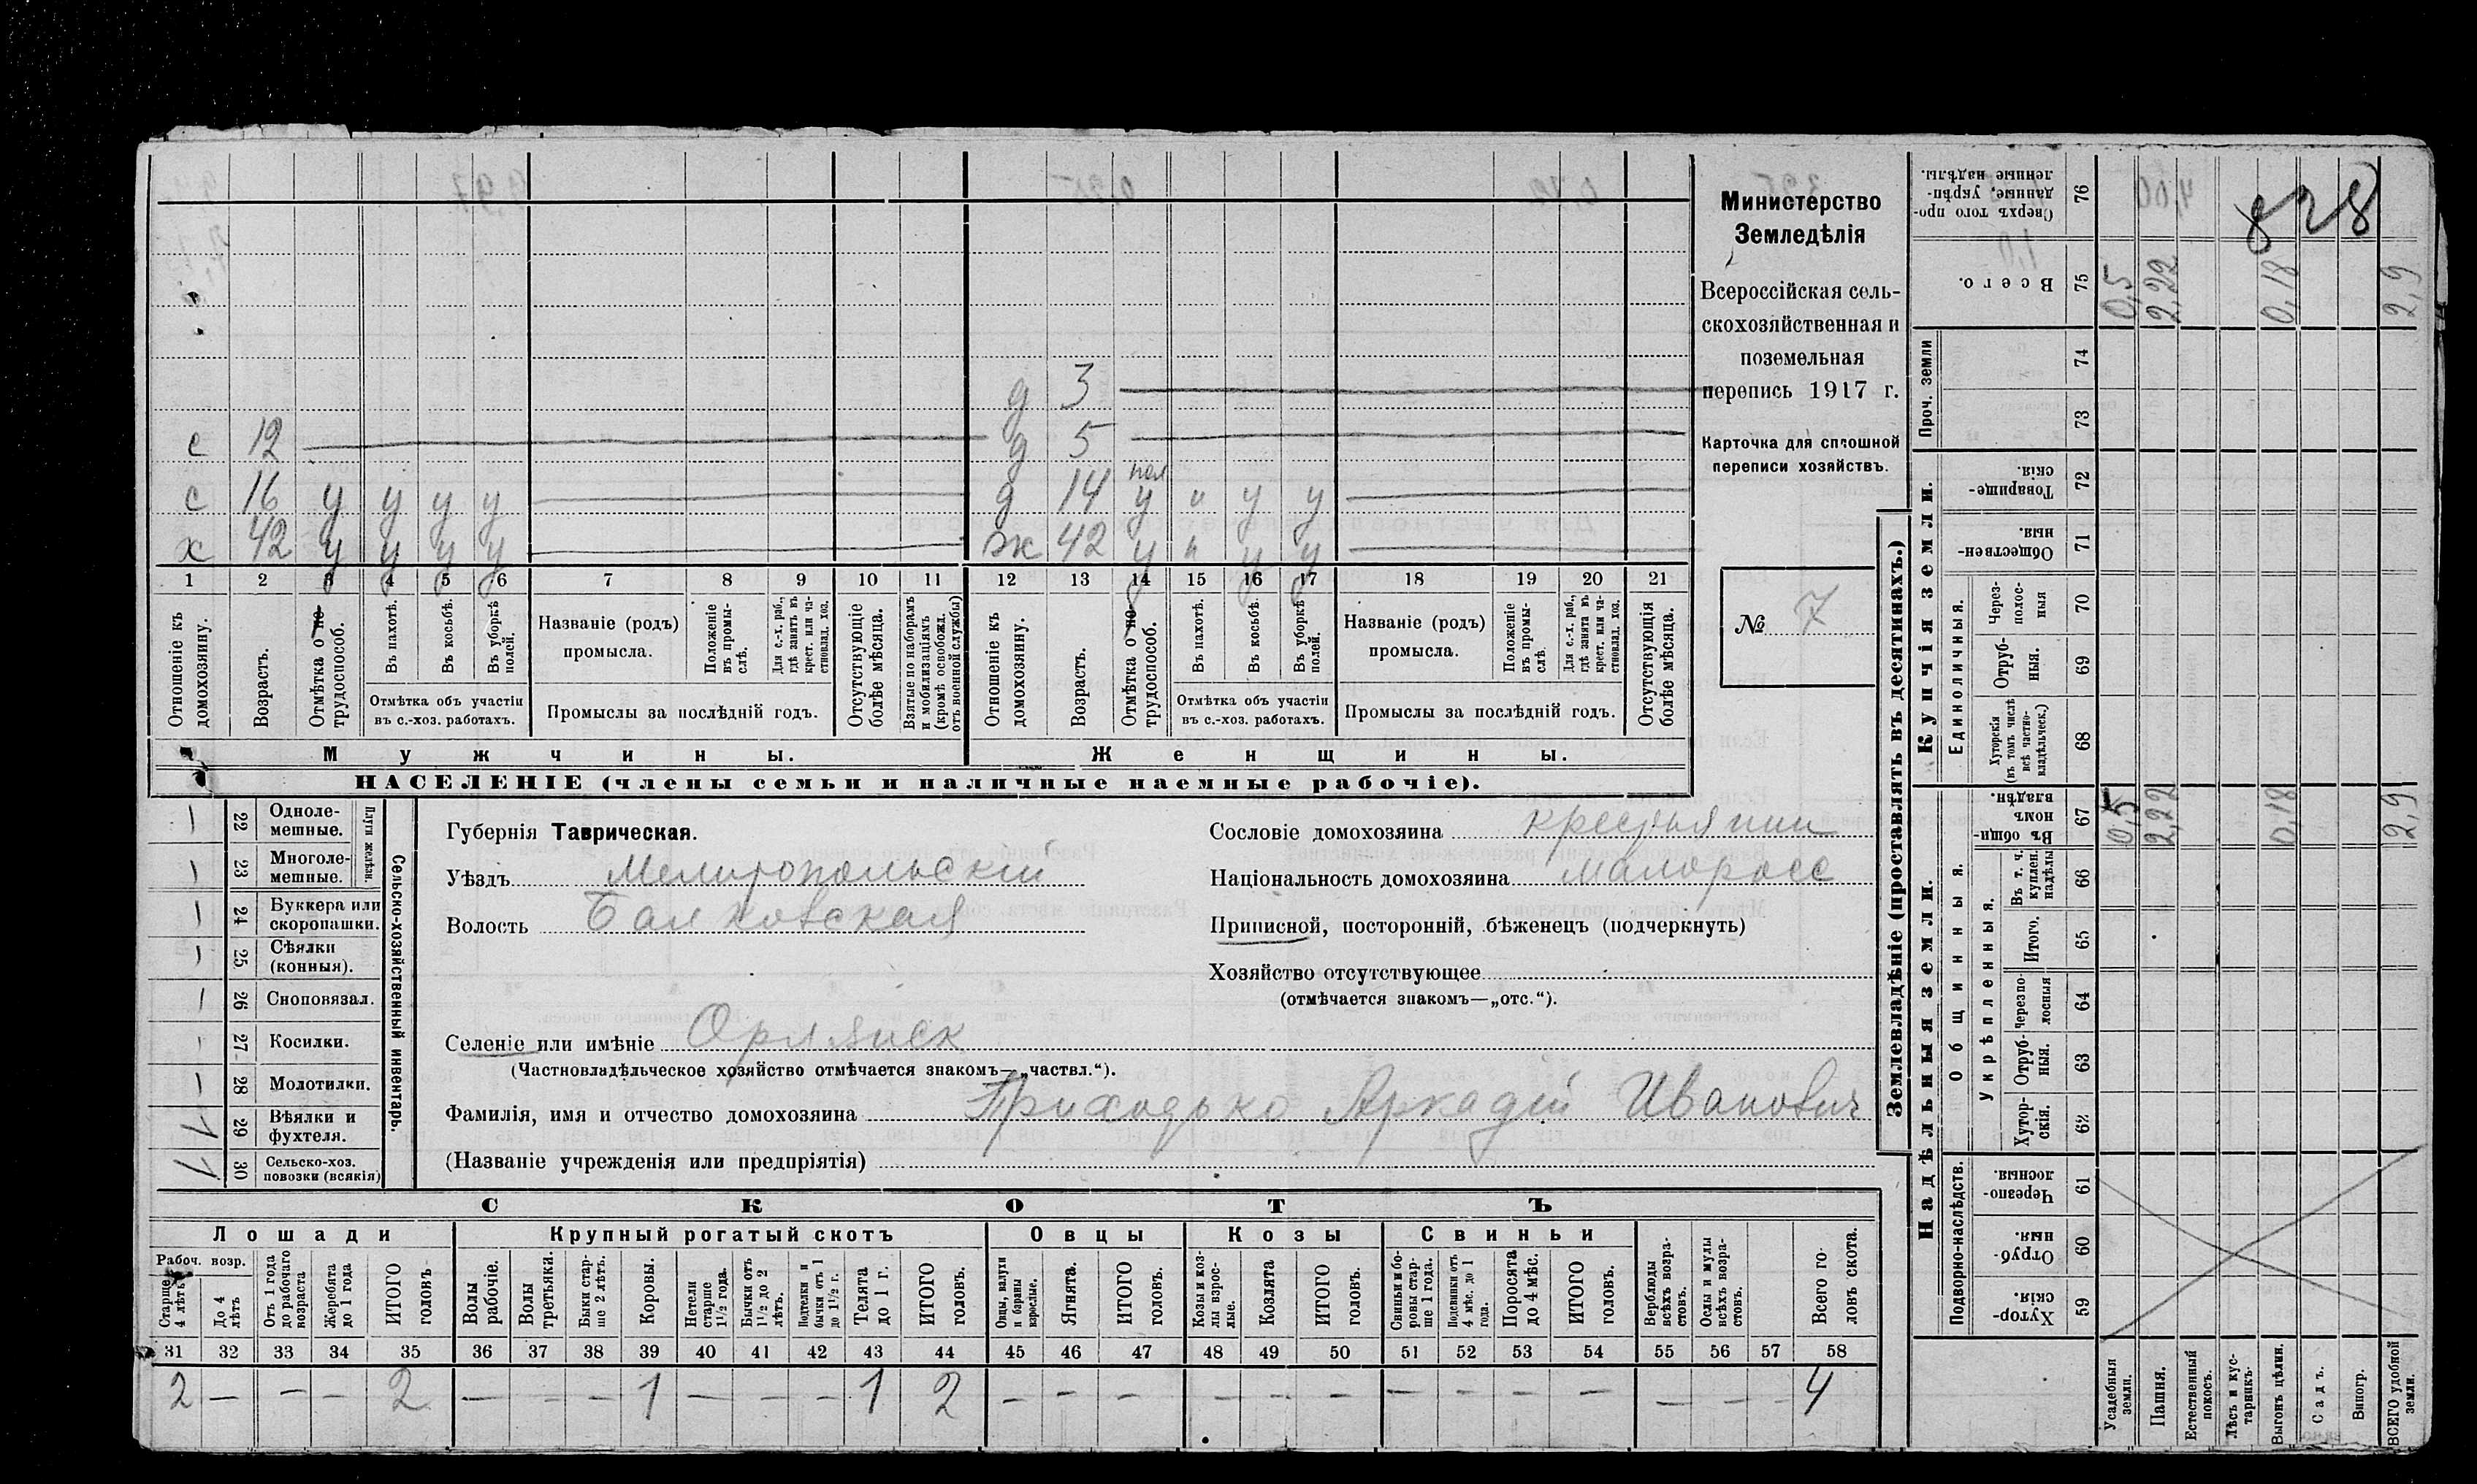 828
Министерство
Земледѣлія
Всероссійская сель-
скохозяйственная и
поземельная
перепись 1917 г.
Карточка для сплошной
переписи хозяйствъ.
№ 7
д 3
с 12 д 5
пол
с 16 у у у у д 14 у „ у у
х 42 у у у у ж 42 у „ у у
1 2 3 4 5 6 7 8 9 10 11 12 13 14 15 16 17 18 19 20 21
Отношеніе къ домохозяину.
Возрастъ.
Отмѣтка о не-трудоспособ.
Въ пахотѣ.
Въ косьбѣ.
Въ уборкѣ полей.
Отмѣтка объ участіи
въ с.-хоз. работахъ.
Названіе (родъ)
промысла.
Положеніе въ промы-слѣ.
Для с.-х. раб., гдѣ занятъ въ крест. или ча-стновлад. хоз.
Промыслы за послѣдній годъ.
Отсутствующіе болѣе мѣсяца.
Взятые по наборамъ и мобилизаціямъ (кромѣ освобожд. отъ военной службы)
Отношеніе къ домохозяину.
Возрастъ.
Отмѣтка о не-трудоспособ.
Въ пахотѣ.
Въ косьбѣ.
Въ уборкѣ полей.
Отмѣтка объ участіи
въ с.-хоз. работахъ.
Названіе (родъ)
промысла.
Положеніе въ промы-слѣ.
Для с.-х. раб., гдѣ занята въ крест. или ча-стновлад. хоз.
Промыслы за послѣдній годъ.
Отсутствующія болѣе мѣсяца.
Мужчины. Женщины.
НАСЕЛЕНІЕ (члены семьи и наличные наемные рабочіе).
Сельско-хозяйственный инвентарь.
Плуги желѣзн.
22 Одноле-мешные.
23 Многоле-мешные.
24 Буккера или скоропашки.
25 Сѣялки (конныя).
26 Сноповязал.
27 Косилки.
28 Молотилки.
29 Вѣялки и фухтеля.
30 Сельско-хоз. повозки (всякія)
Губернія Таврическая.
Уѣздъ Мелитопольскій
Волость Балковская
Селеніе или имѣніе Орлянск
(Частновладѣльческое хозяйство отмѣчается знакомъ—„частвл.“).
Сословіе домохозяина крестьянин
Національность домохозяина малоросс
Приписной, посторонній, бѣженецъ (подчеркнуть)
Хозяйство отсутствующее
(отмѣчается знакомъ—„отс.“).
Фамилія, имя и отчество домохозяина Приходько Аркадій Иванович
(Названіе учрежденія или предпріятія)
СКОТЪ
Лошади Крупный рогатый скотъ Овцы Козы Свиньи
Рабоч. возр.
Старше 4 лѣтъ
До 4 лѣтъ
Отъ 1 года до рабочаго возраста
Жеребята до 1 года
ИТОГО головъ.
Волы рабочіе.
Волы третьяки.
Быки стар-ше 2 лѣтъ.
Коровы.
Нетели старше 1½ года.
Бычки отъ 1½ до 2 лѣтъ.
Подтелки и бычки отъ 1 до 1½ г.
Телята до 1 г.
ИТОГО головъ.
Овцы, валухи и бараны взрослые.
Ягнята.
ИТОГО головъ.
Козы и коз-лы взрос-лые.
Козлята
ИТОГО головъ.
Свиньи и бо-ровы стар-ше 1 года.
Подсвинки отъ 4 мѣс. до 1 года.
Поросята до 4 мѣс.
ИТОГО головъ.
Верблюды всѣхъ возра-стовъ.
Ослы и мулы всѣхъ возра-стовъ.
Всего го-ловъ скота.
31 32 33 34 35 36 37 38 39 40 41 42 43 44 45 46 47 48 49 50 51 52 53 54 55 56 57 58
2 — — — 2 — — — 1 — — — 1 2 — — — — — — — — — — — — — 4
Землевладѣніе (проставлять въ десятинахъ.)
Надѣльныя земли. Купчія земли. Проч. земли
Подворно-наслѣдств.
Общинныя.
Укрѣпленныя.
Единоличныя.
76 Сверхъ того про-данные, укрѣп-ленные надѣлы.
75 Всего. 0,5 2,22 0,18 2,9
74
73
72 Товарище-скія.
71 Обществен-ныя.
70 Через-полос-ныя
69 Отруб-ныя.
68 Хуторскія (въ томъ числѣ всѣ частно-владѣльческ.)
67 Въ общин-номъ владѣн. 0,5 2,22 0,18 2,9
66 Въ т. ч. куплен. надѣлы
65 Итого.
64 Черезпо-лосныя
63 Отруб-ныя.
62 Хутор-скія.
61 Черезпо-лосныя.
60 Отруб-ныя.
59 Хутор-скія.
Усадебныя земли.
Пашня.
Естественный покосъ.
Лѣсъ и кус-тарникъ.
Выгонъ цѣлин.
Садъ.
Виногр.
ВСЕГО удобной земли.